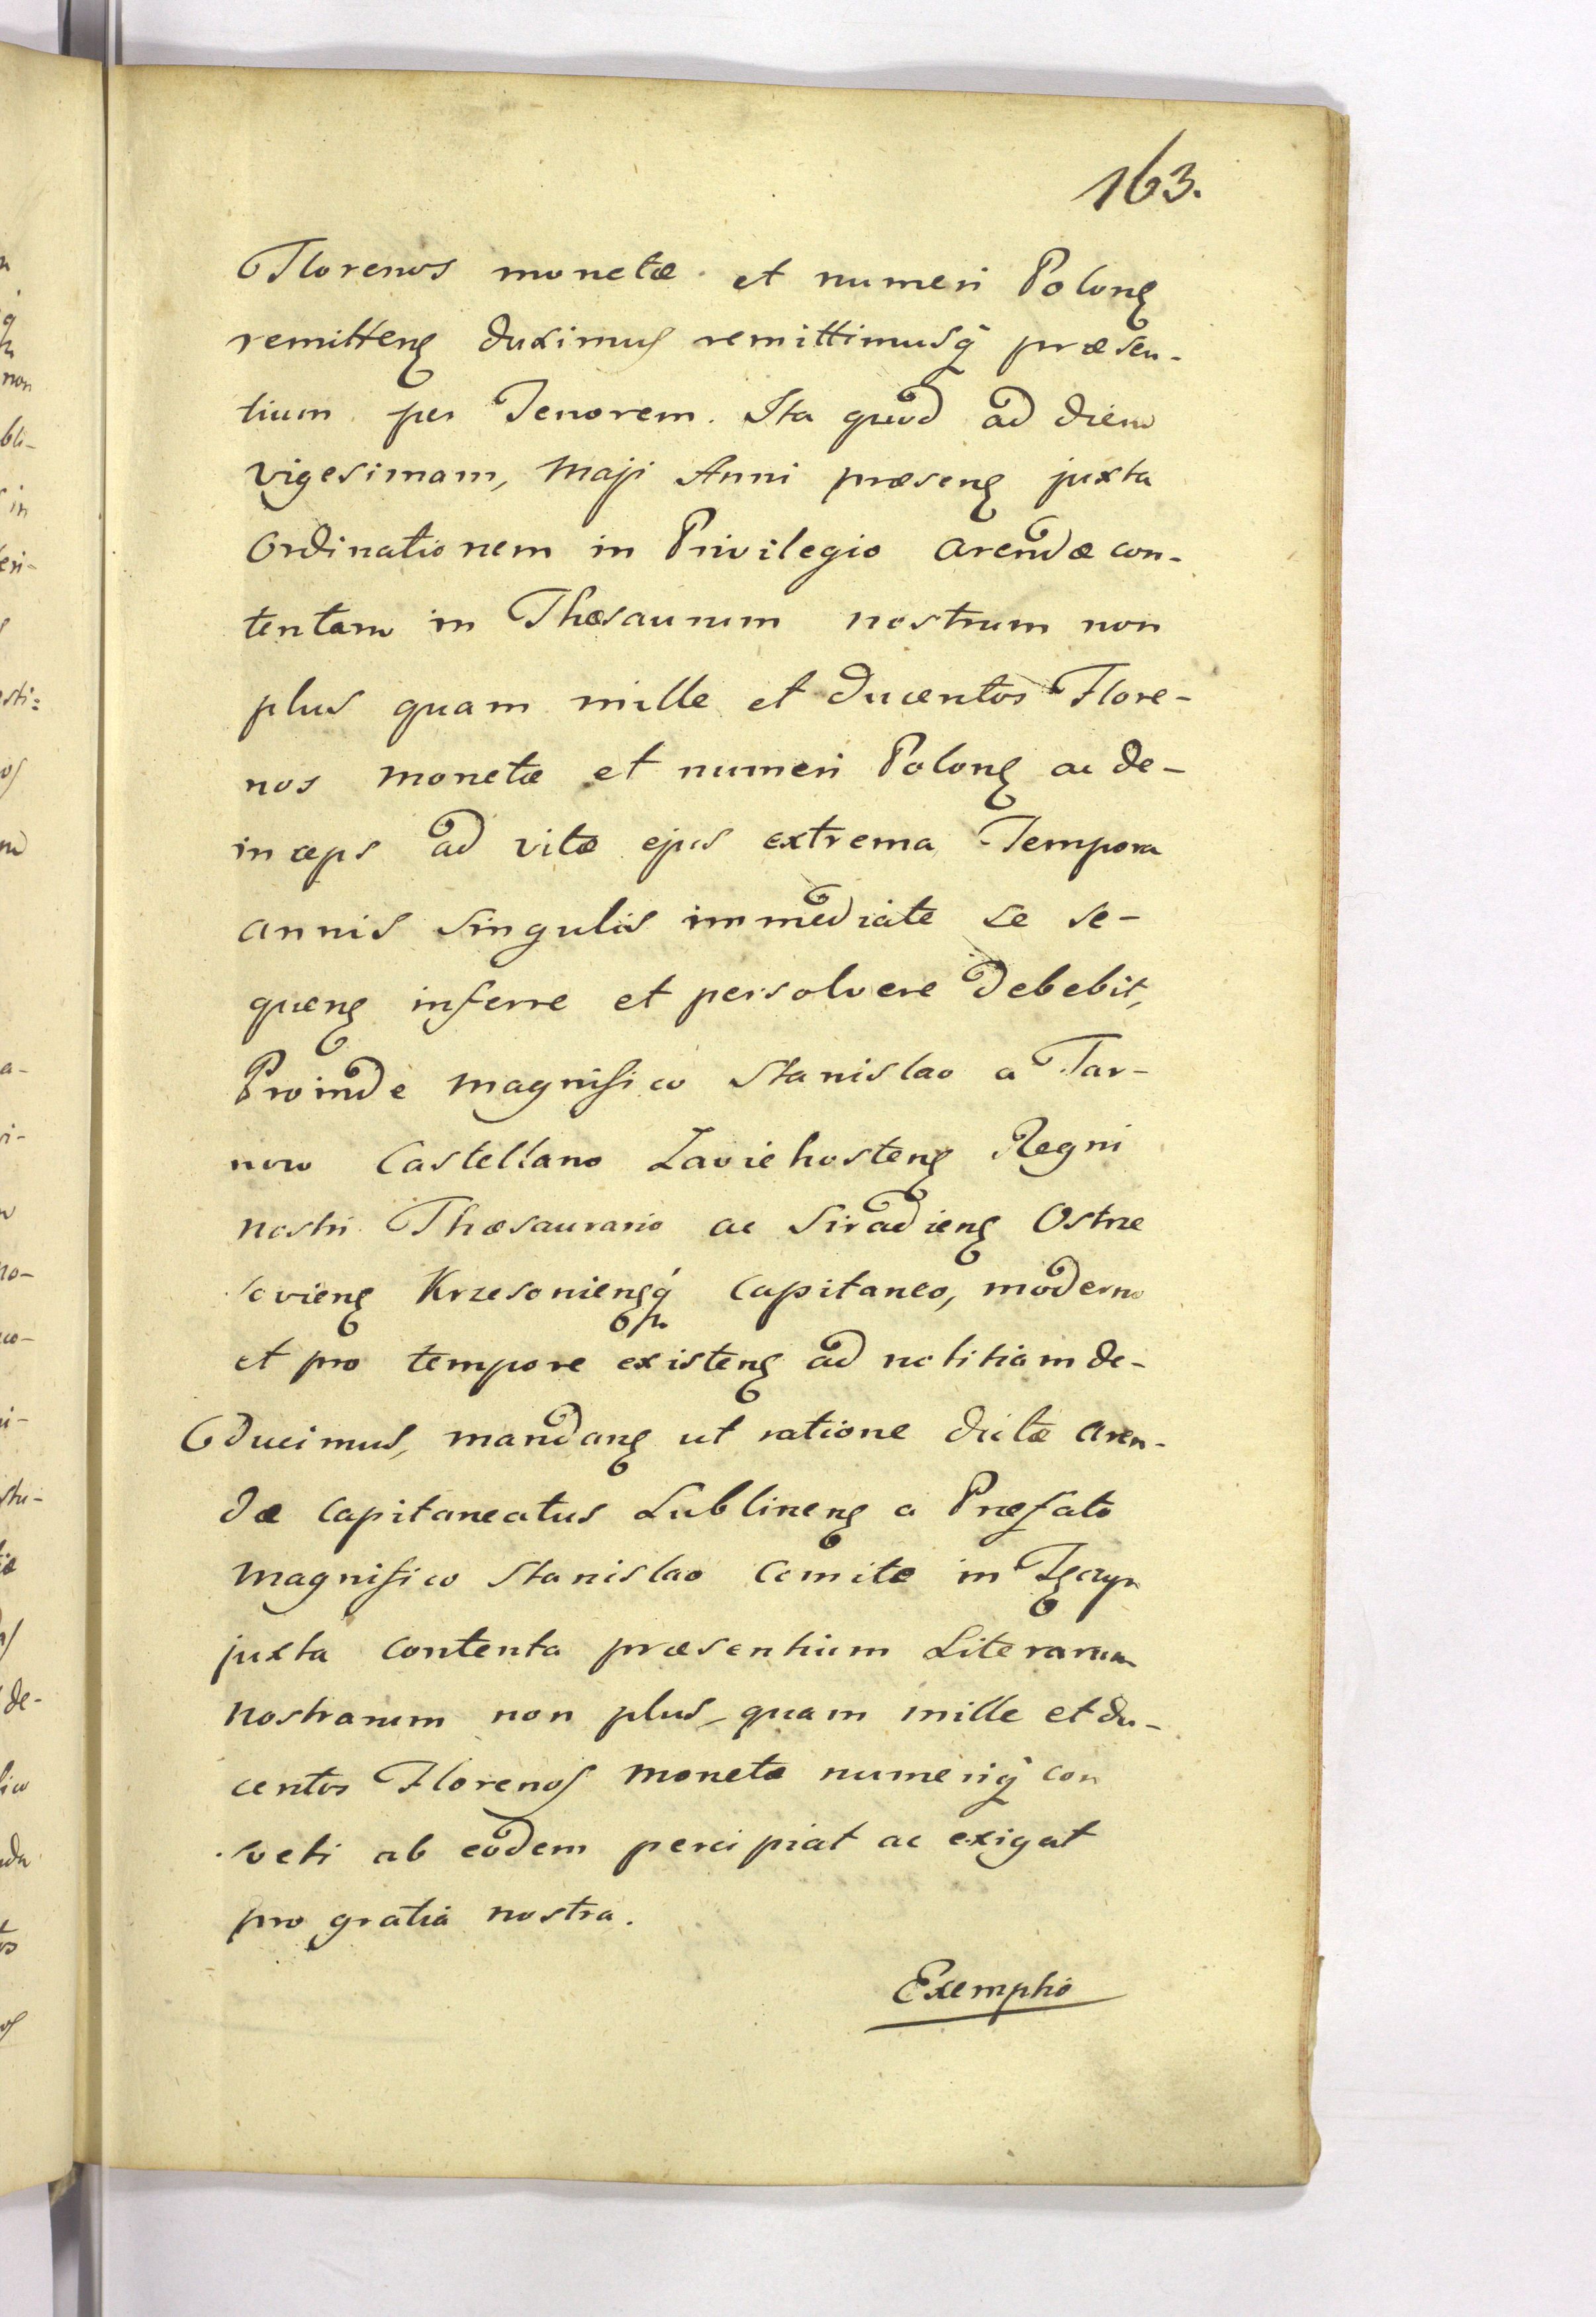 163.
Florenos monetæ et numeri Polonꝫ
remittenꝫ duximus remittimusq́ præsen-
tium per Tenorem. Ita quod ad diem
vigesimam, Maji Anni præsenꝫ juxta
Ordinationem in Privilegio arendæ con-
tentam in Thæsaurum nostrum non
plus quam mille et ducentos Flore-
nos monetæ et numeri Polonꝫ ac de-
inceps ad vitæ ejus extrema Tempora
annis singulis immediate se se-
quenꝫ inferre et persolvere debebit,
Proinde magnifico Stanislao a Tar-
now Castellano Zaviehostenꝫ Regni
nostri Thæsaurario ac Siradienꝫ Ostrze
scvienꝫ Krzesonienꝫq́ Capitaneo, moderno
et pro tempore existenꝫ ad notitiam de-
ducimus, mandanꝫ ut ratione dictæ aren-
dæ Capitaneatus Lublinenꝫ a Præfato
magnifico Stanislao Comitæ in Tꝫczyn
juxta contenta præsentium Literarum
nostrarum non plus, quam mille et du-
centos Florenos monetæ numeriq́ con
sveti ab eodem percipiat ac exigat
pro gratia nostra.
Exemptio